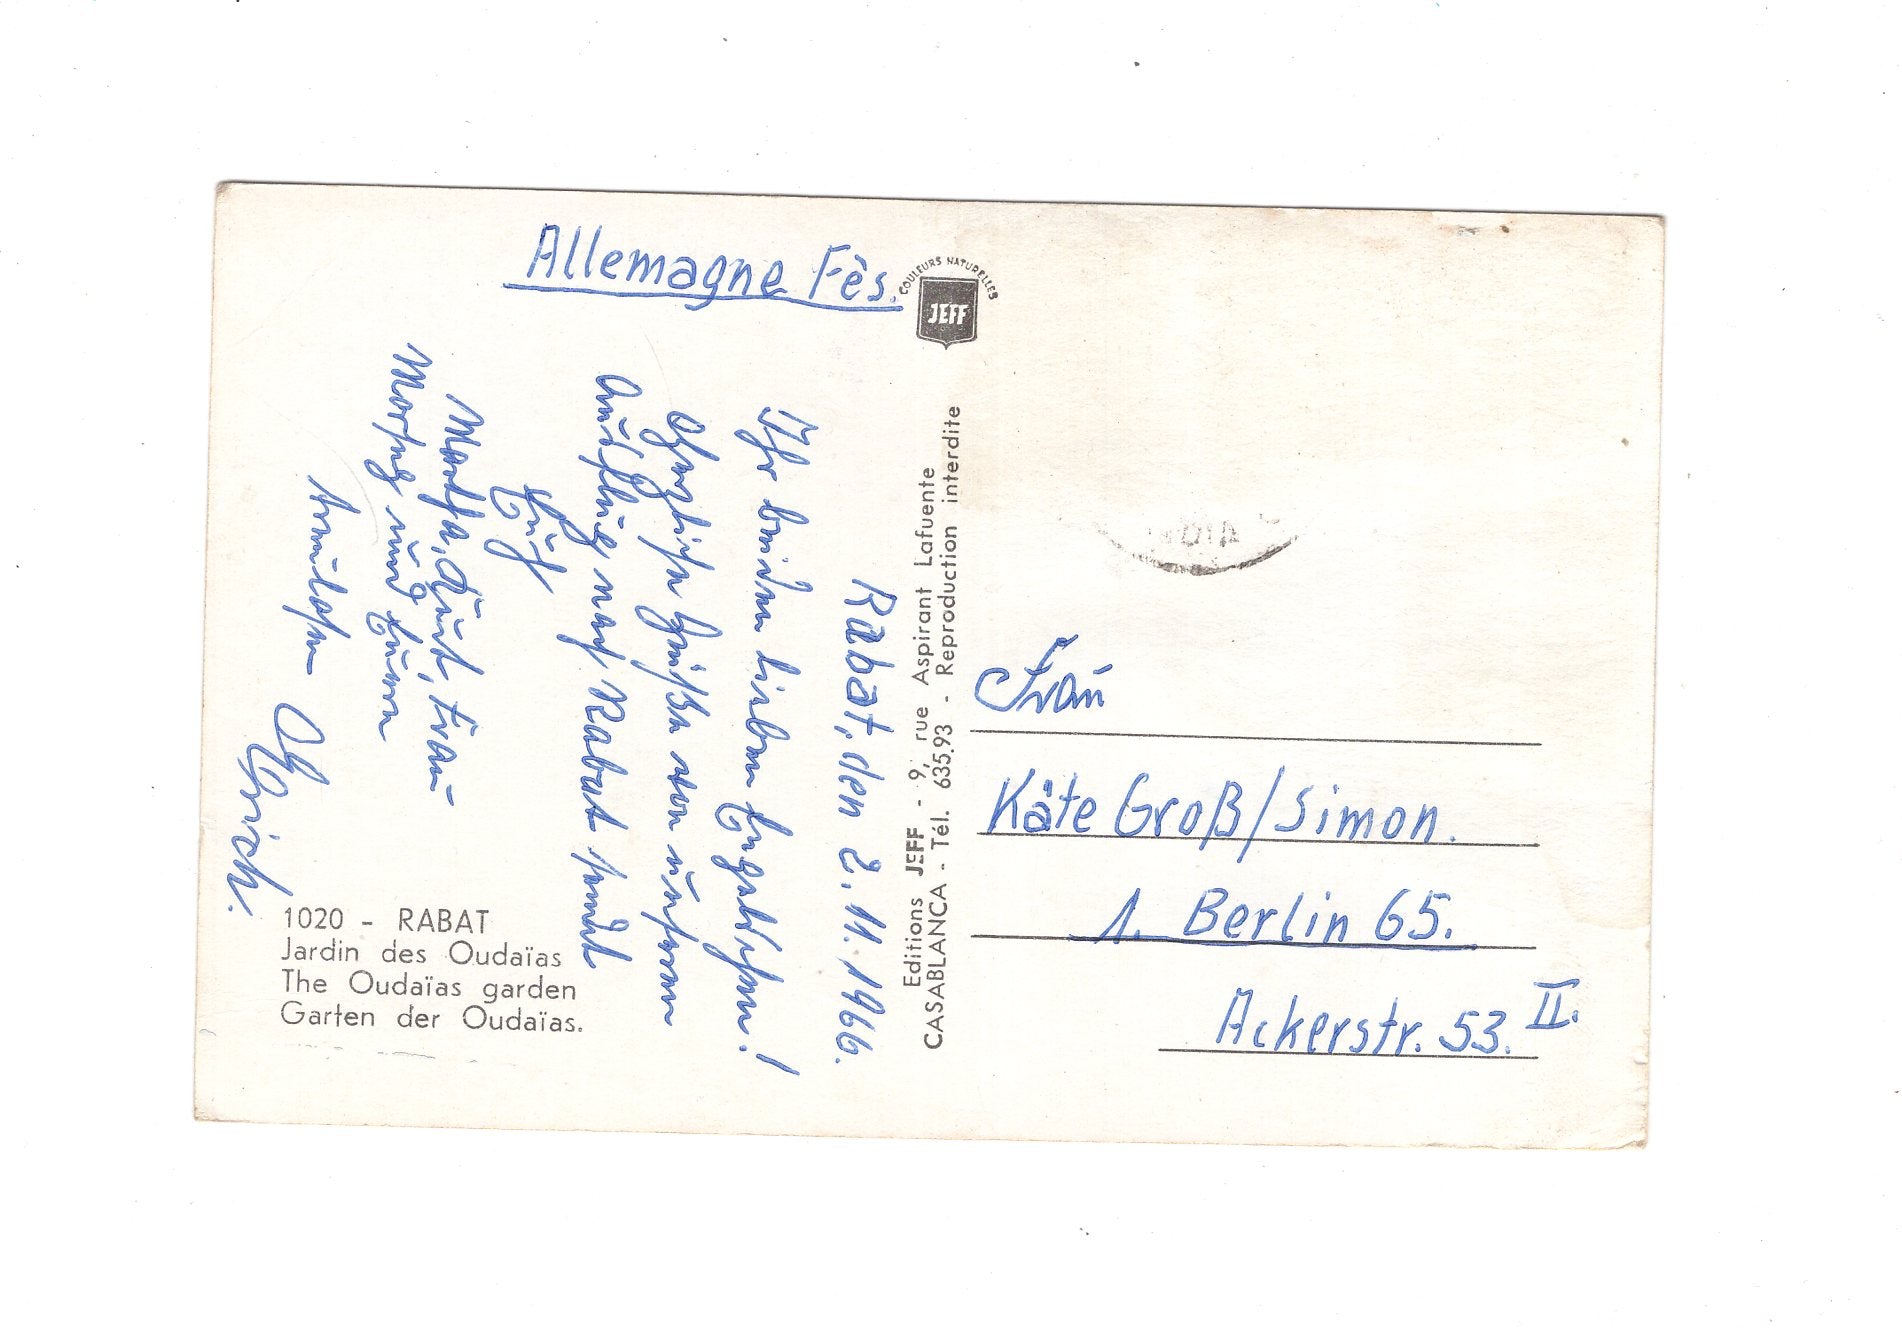 Allemagne Fês.
COULEURS NATURELLES
JEFF
Rabat, den 2. 11. 1966.
Ihr beiden lieben
Herzliche Grüße von unserem
Ausflug nach Rabat sendet
Euch
Martha, Kurt, Frau
und Euren
Erich.
1020 - RABAT
Jardin des Oudaïas
The Oudaïas garden
Garten der Oudaïas.
Editions JEFF - 9, rue Aspirant Lafuente
CASABLANCA - Tél. 635.93 - Reproduction interdite
Frau
Käte Groß/Simon.
1. Berlin 65.
Ackerstr. 53. II.